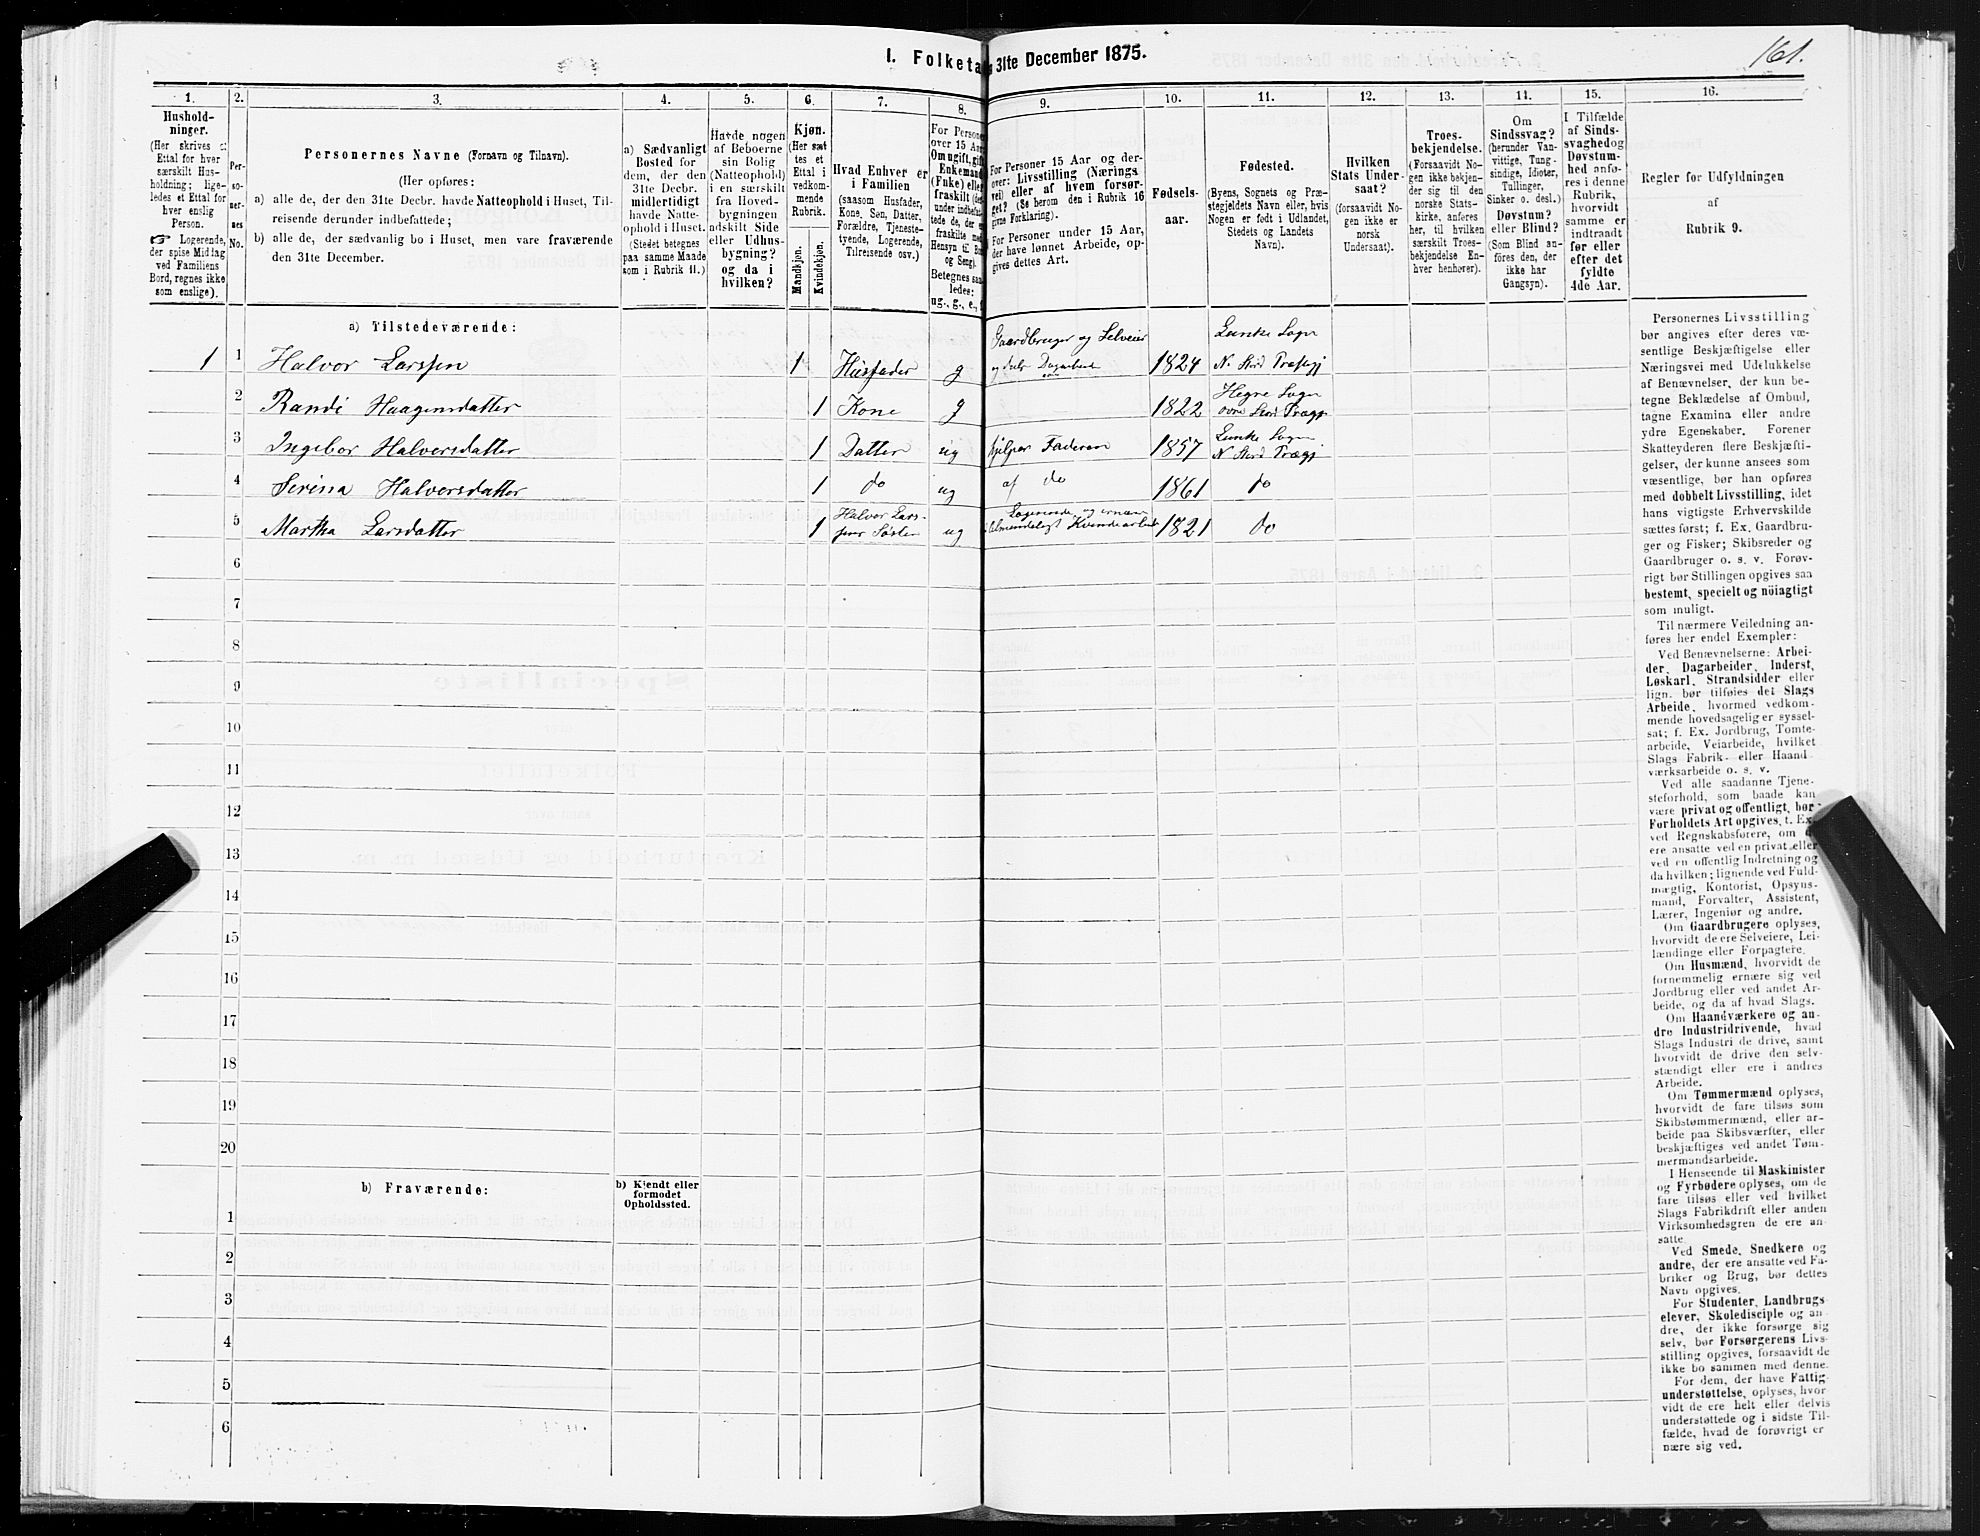 1. Folketa 31te December 1875.
161.
1.
2.
3.
4.
5.
6.
7.
8.
9.
10.
11.
12.
13.
14.
15.
16.
Hushold-
ninger.
(Her skrives
Ettal for hver
særskilt Hus-
holdning; lige-
ledes et Ettal for
hver enslig
Person.
☞ Logerende,
der spise Middag
ved Familiens
Bord, regnes ikke
som enslige).
Per-
so-
ner-
nes
No.
Personernes Navne (Fornavn og Tilnavn).
(Her opføres:
a) alle de, der den 31te Decbr. havde Natteophold i Huset, Til-
reisende derunder indbefattede;
b) alle de, der sædvanlig bo i Huset, men vare fraværende
den 31te December.
a) Sædvanligt
Bosted for
dem, der den
31te Decbr.
midlertidigt
havde Natte-
ophold i Huset.
(Stedet betegnes
paa samme Maade
som i Rubrik 11.)
Havde nogen
af Beboerne
sin Bolig
(Natteophold)
i en særskilt
fra Hoved-
bygningen
adskilt Side
eller Udhus-
bygning?
og da i
hvilken?
Kjøn.
(Her sæt
tes et
Ettal i
vedkom-
mende
Rubrik.
Mandkjøn.
Kvindekjøn.
Hvad Enhver er
i Familien
(saasom Husfader,
Kone, Søn, Datter,
Forældre, Tjeneste-
tyende, Logerende,
Tilreisende osv.)
For Persone
over 15 Aa
Om ugift, gif
Enkemand
(Enke) eller
fraskilt (der-
under indbefat-
tede de, der e
fraskilte med
Hensyn til B
og Seng).
Betegnes saa
ledes:
ug., g., e., f
For Personer 15 Aar og der-
over: Livsstilling (Nærings
vei) eller af hvem forsør-
get? (Se herom den i Rubrik 16
givne Forklaring).
For Personer under 15 Aar,
der have lønnet Arbeide, op-
gives dettes Art.
Fødsels-
aar.
Fødested.
(Byens, Sognets og Præ-
stegjeldets Navn eller, hvis
Nogen er født i Udlandet,
Stedets og Landets
Navn).
Hvilken
Stats Under-
saat?
(forsaavidt No-
gen ikke er
norsk
Undersaat).
Troes-
bekjendelse.
(Forsaavidt No-
gen ikke bekjen-
der sig til den
norske Stats-
kirke, anføres
her, til hvilken
særskilt Troes-
bekjendelse En-
hver henhører).
Om
Sindssvag?
(herunder Van-
vittige, Tung-
sindige, Idioter,
Tullinger,
Sinker o. desl.)
Døvstum?
eller Blind?
(Som Blind an-
føres den, der
ikke har
Gangsyn).
I Tilfælde
af Sinds-
svaghedog
Døvstum-
hed anfø-
res i denne
Rubrik,
hvorvidt
samme er
indtraadt
før eller
efter det
fyldte
4de Aar.
Regler for Udfyldningen
af
Rubrik 9.
a) Tilstedeværende:
1 1 Halvor Larssen 1 Husfader g Gaardbruger og Selveier 1824
Lunke Sogn
2 Randi Haagensdatter 1 Kone g 1822 Hegne Sogn
3 Ingebor Halversdatter 1 Datter ug hjelper Faderen 1857 Lunke Sogn
4 Serina Halversdatter 1 do ug af do 1861 do
5 Martha Larsdatter 1 Halvor Lars-
sens Søster ug Logerende og
Almindeligt Kvindearbeide 1821 do
6
7
8
9
10
11
12
13
14
15
16
17
18
19
20
b) Fraværende:
b) Kjendt eller
formodet
Opholdssted.
1
2
3
4
5
6
Personernes Livsstilling
bør angives efter deres væ-
sentlige Beskjæftigelse eller
Næringsvei med Udelukkelse
af Benævnelser, der kun be-
tegne Beklædelse af Ombud,
tagne Examina eller andre
ydre Egenskaber. Forener
Skatteyderen flere Beskjæfti-
gelser, der kunne ansees som
væsentlige, bør han opføres
med dobbelt Livsstilling, idet
hans vigtigste Erhvervskilde
sættes først; f. Ex. Gaardbru-
ger og Fisker; Skibsreder og
Gaardbruger o. s. v. Forøv-
rigt bør Stillingen opgives saa
bestemt, specielt og nöiagtigt
som muligt.
Til nærmere Veiledning an-
føres her endel Exempler:
Ved Benævnelserne: Arbei-
der, Dagarbeider, Inderst,
Løskarl, Strandsidder eller
lign. bør tilføies det Slags
Arbeide, hvormed vedkom-
mende hovedsagelig er syssel-
sat; f. Ex. Jordbrug, Tomte-
arbeide, Veiarbeide, hvilket
Slags Fabrik- eller Haand
værksarbeide o. s. v.
Ved alle saadanne Tjene-
steforhold, som baade kan
være privat og offentligt, bør
Forholdets Art opgives, t. Ex.
ved Regnskabsførere, om
ere ansatte ved en privat eller
ved en offentlig Indretning og
da hvilken; lignende ved Fuld-
mægtig, Kontorist, Opsyns-
mand, Forvalter, Assistent,
Lærer, Ingeniør og andre.
Om Gaardbrugere oplyses,
hvorvidt de ere Selveiere, Lei-
lændinge eller Forpagtere.
Om Husmænd, hvorvidt de
fornemmelig ernære sig ved
Jordbrug eller ved andet Ar-
beide, og da af hvad Slags.
Om Haandværkere og an-
dre Industridrivende, hvad
Slags Industri de drive, samt
hvorvidt de drive den selv-
stændigt eller ere i andres
Arbeide.
Om Tømmermænd oplyses,
hvorvidt de fare tilsøs som
Skibstømmermænd, eller ar-
beide paa Skibsværfter, eller
beskjæftiges ved andet Tøm-
mermandsarbeide.
I Henseende til Maskinister
og Fyrbødere oplyses, om de
fare tilsøs eller ved hvilket
Slags Fabrikdrift eller anden
Virksomhedsgren de ere an-
satte.
Ved Smede, Snedkere og
andre, der ere ansatte ved Fa-
briker og Brug, bør dettes
Navn opgives.
For Studenter, Landbrugs
elever, Skoledisciple og an-
dre, der ikke forsørge sig
selv, bør Forsørgerens Livs-
stilling opgives, forsaavidt de
ikke bo sammen med denne.
For dem, der have Fattig-
understøttelse, oplyses, hvor
vidt de ere helt eller delvis
understøttede og i sidste Til-
fælde, hvad de forøvrigt er
nære sig ved.